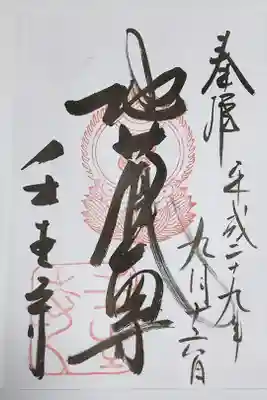 奉拝
平成二十九年
九月十六日
地蔵尊
壬生寺